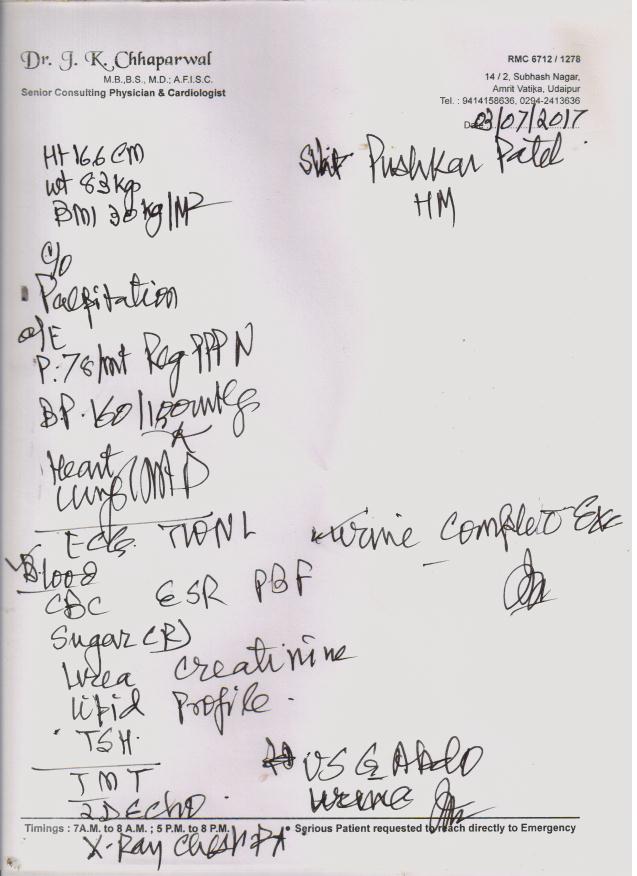 Dr. J. K. Chhaparwal
M.B.,B.S., M.D.; A.F.I.S.C.
Senior Consulting Physician & Cardiologist
RMC 6712 / 1278
14 / 2, Subhash Nagar,
Amrit Vatika, Udaipur
Tel. : 9414158636, 0294-2413636
03/07/2017
Pushkar Patel
HM
Ht 166 CM
wt 83 kg
BMI 30 kg/M2
C/O
Palpitation
O/E
P. 78/mt Reg PPP N
BP. 160/100 mmHg
Heart
Lung
ECG
Blood
CBC ESR PBF
Sugar (R)
Urea Creatinine
Lipid Profile
TSH
TMT
2D Echo
X-Ray Chest PA
Urine Complet Exc
USG Abdo
Urine
Timings : 7A.M. to 8 A.M. ; 5 P.M. to 8 P.M.
• Serious Patient requested to reach directly to Emergency